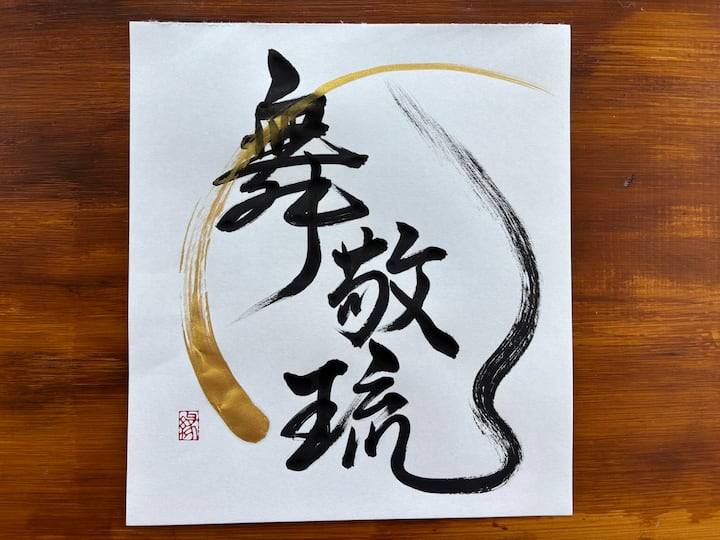 舞
敬
琉